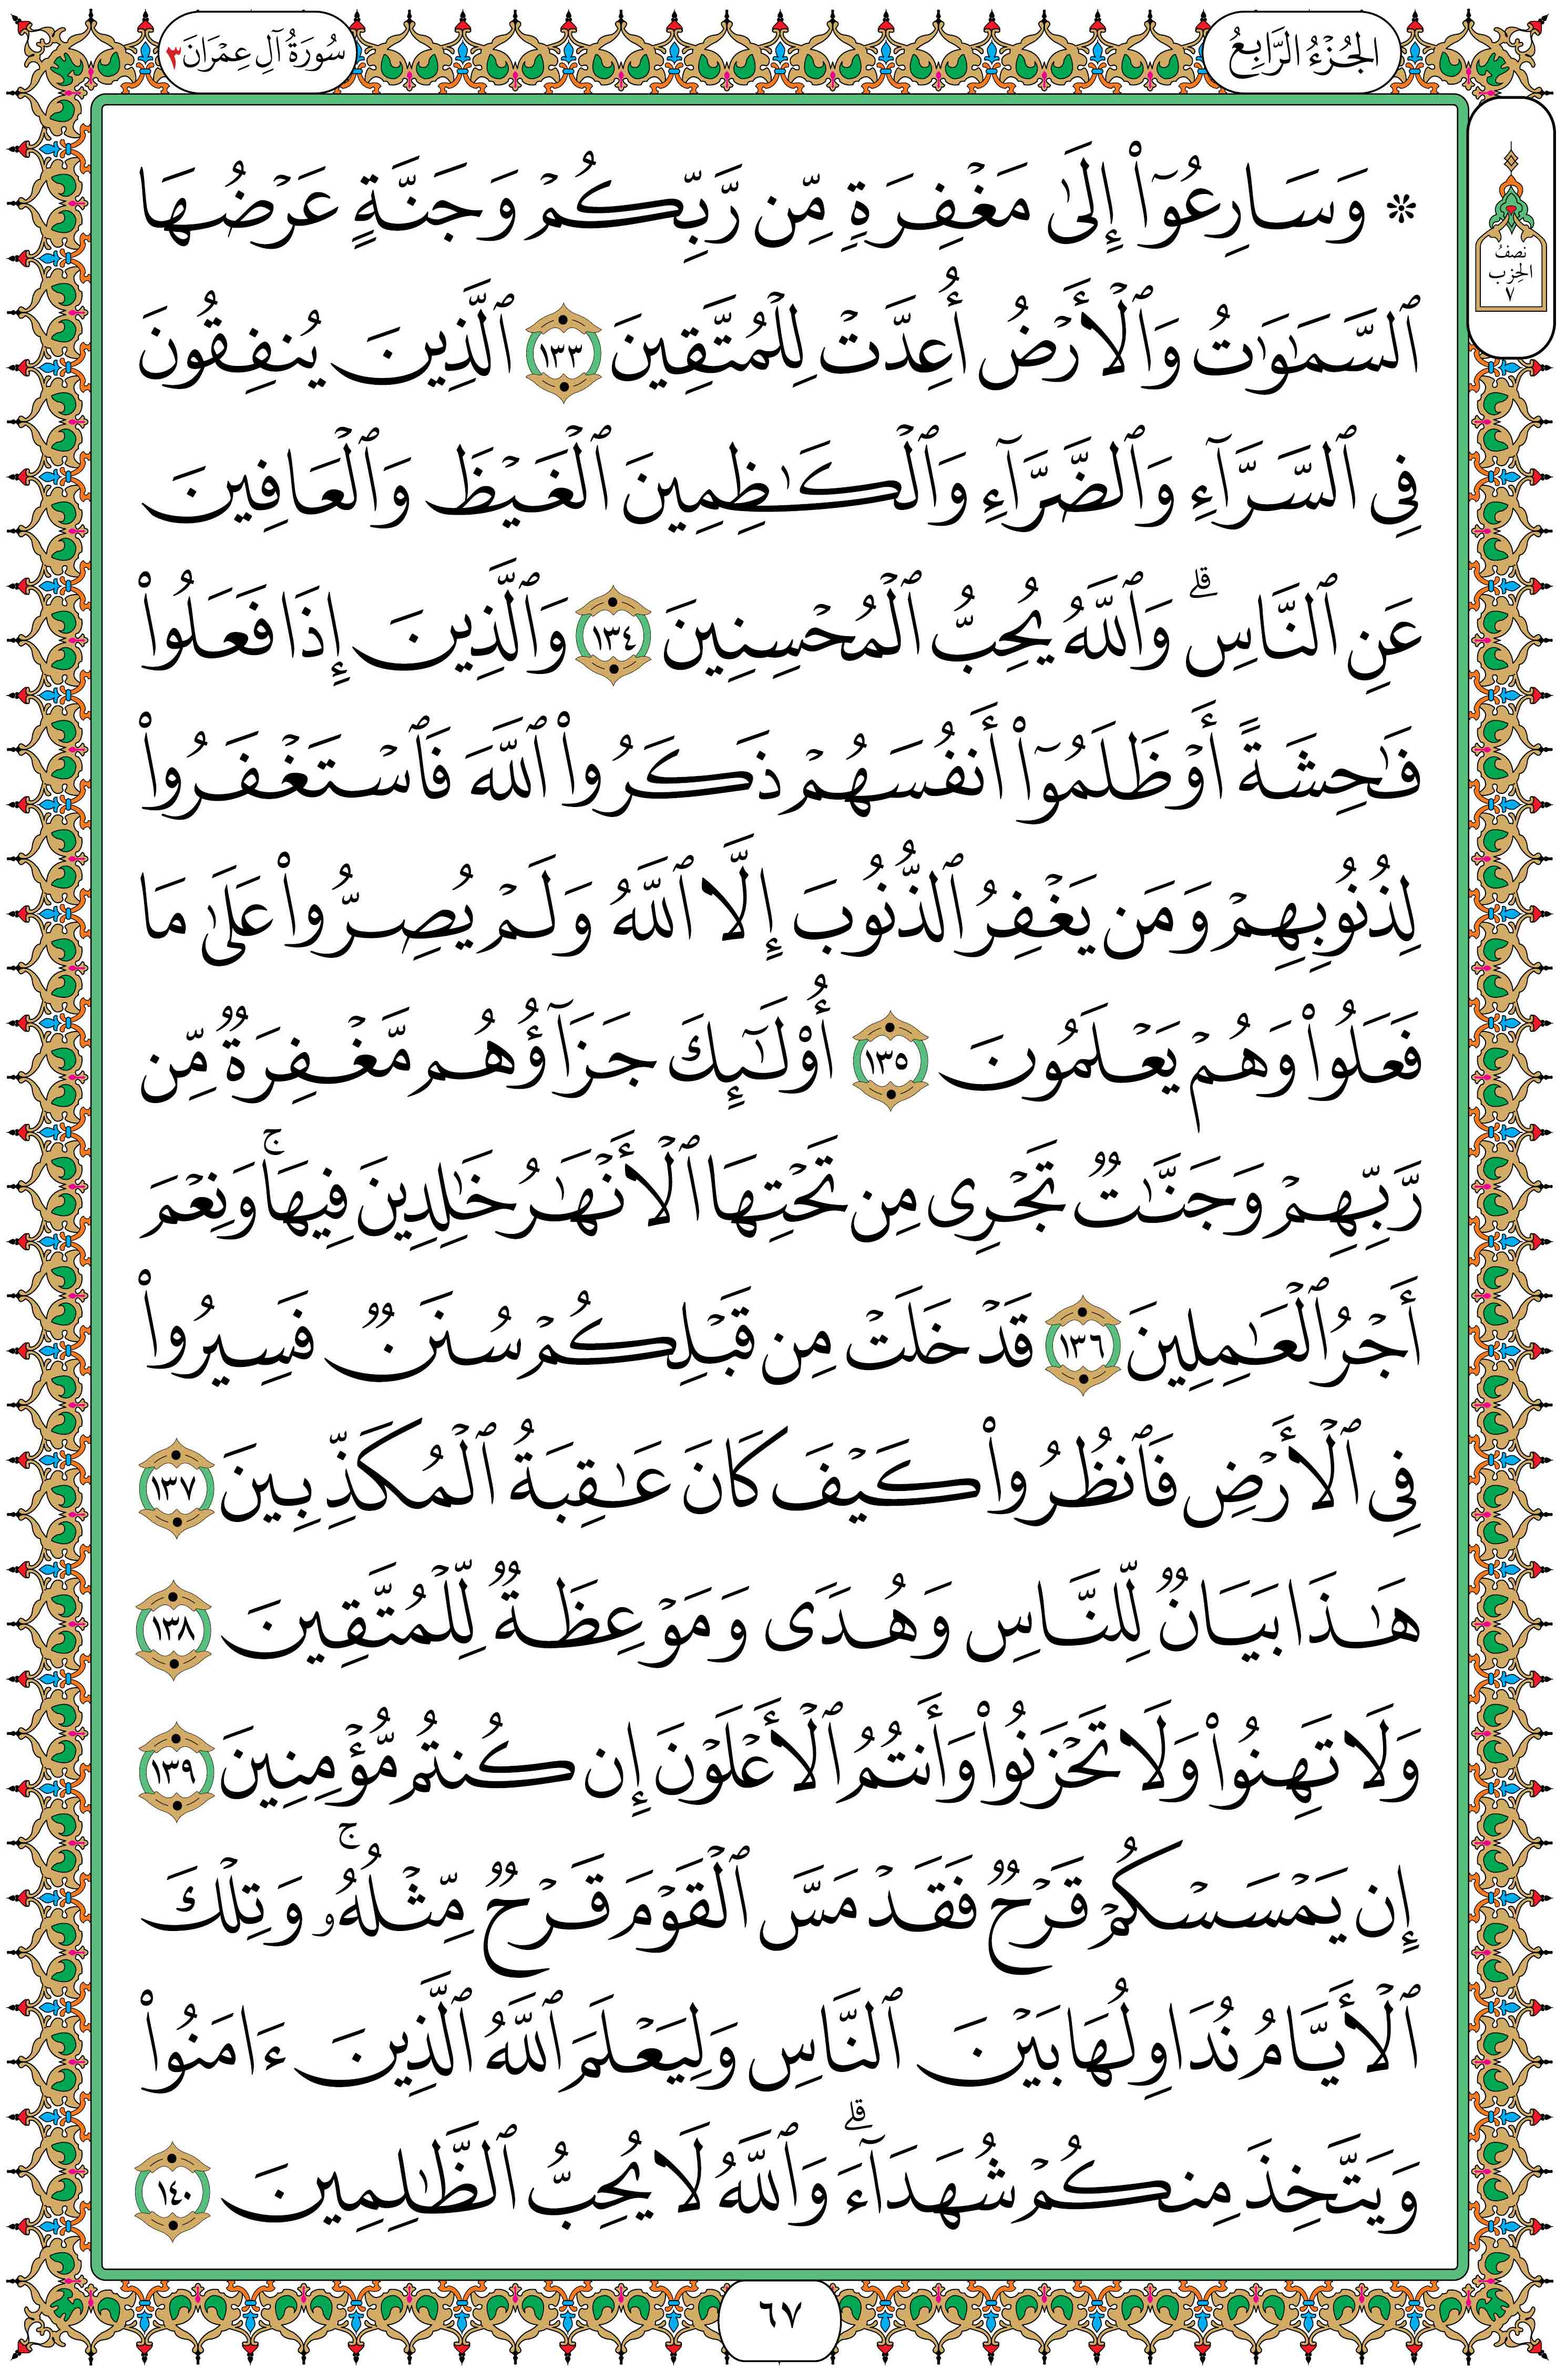 الجُزْءُ الرَّابِعُ
سُورَةُ آلِ عِمْرَانَ ٣
نصف
الحزب
٧
* وَسَارِعُوٓا۟ إِلَىٰ مَغْفِرَةٍ مِّن رَّبِّكُمْ وَجَنَّةٍ عَرْضُهَا
ٱلسَّمَـٰوَٰتُ وَٱلْأَرْضُ أُعِدَّتْ لِلْمُتَّقِينَ ١٣٣ ٱلَّذِينَ يُنفِقُونَ
فِى ٱلسَّرَّآءِ وَٱلضَّرَّآءِ وَٱلْكَـٰظِمِينَ ٱلْغَيْظَ وَٱلْعَافِينَ
عَنِ ٱلنَّاسِ ۗ وَٱللَّهُ يُحِبُّ ٱلْمُحْسِنِينَ ١٣٤ وَٱلَّذِينَ إِذَا فَعَلُوا۟
فَـٰحِشَةً أَوْ ظَلَمُوٓا۟ أَنفُسَهُمْ ذَكَرُوا۟ ٱللَّهَ فَٱسْتَغْفَرُوا۟
لِذُنُوبِهِمْ وَمَن يَغْفِرُ ٱلذُّنُوبَ إِلَّا ٱللَّهُ وَلَمْ يُصِرُّوا۟ عَلَىٰ مَا
فَعَلُوا۟ وَهُمْ يَعْلَمُونَ ١٣٥ أُو۟لَـٰٓئِكَ جَزَآؤُهُم مَّغْفِرَةٌ مِّن
رَّبِّهِمْ وَجَنَّـٰتٌ تَجْرِى مِن تَحْتِهَا ٱلْأَنْهَـٰرُ خَـٰلِدِينَ فِيهَا ۚ وَنِعْمَ
أَجْرُ ٱلْعَـٰمِلِينَ ١٣٦ قَدْ خَلَتْ مِن قَبْلِكُمْ سُنَنٌ فَسِيرُوا۟
فِى ٱلْأَرْضِ فَٱنظُرُوا۟ كَيْفَ كَانَ عَـٰقِبَةُ ٱلْمُكَذِّبِينَ ١٣٧
هَـٰذَا بَيَانٌ لِّلنَّاسِ وَهُدًى وَمَوْعِظَةٌ لِّلْمُتَّقِينَ ١٣٨
وَلَا تَهِنُوا۟ وَلَا تَحْزَنُوا۟ وَأَنتُمُ ٱلْأَعْلَوْنَ إِن كُنتُم مُّؤْمِنِينَ ١٣٩
إِن يَمْسَسْكُمْ قَرْحٌ فَقَدْ مَسَّ ٱلْقَوْمَ قَرْحٌ مِّثْلُهُۥ ۚ وَتِلْكَ
ٱلْأَيَّامُ نُدَاوِلُهَا بَيْنَ ٱلنَّاسِ وَلِيَعْلَمَ ٱللَّهُ ٱلَّذِينَ ءَامَنُوا۟
وَيَتَّخِذَ مِنكُمْ شُهَدَآءَ ۗ وَٱللَّهُ لَا يُحِبُّ ٱلظَّـٰلِمِينَ ١٤٠
٦٧